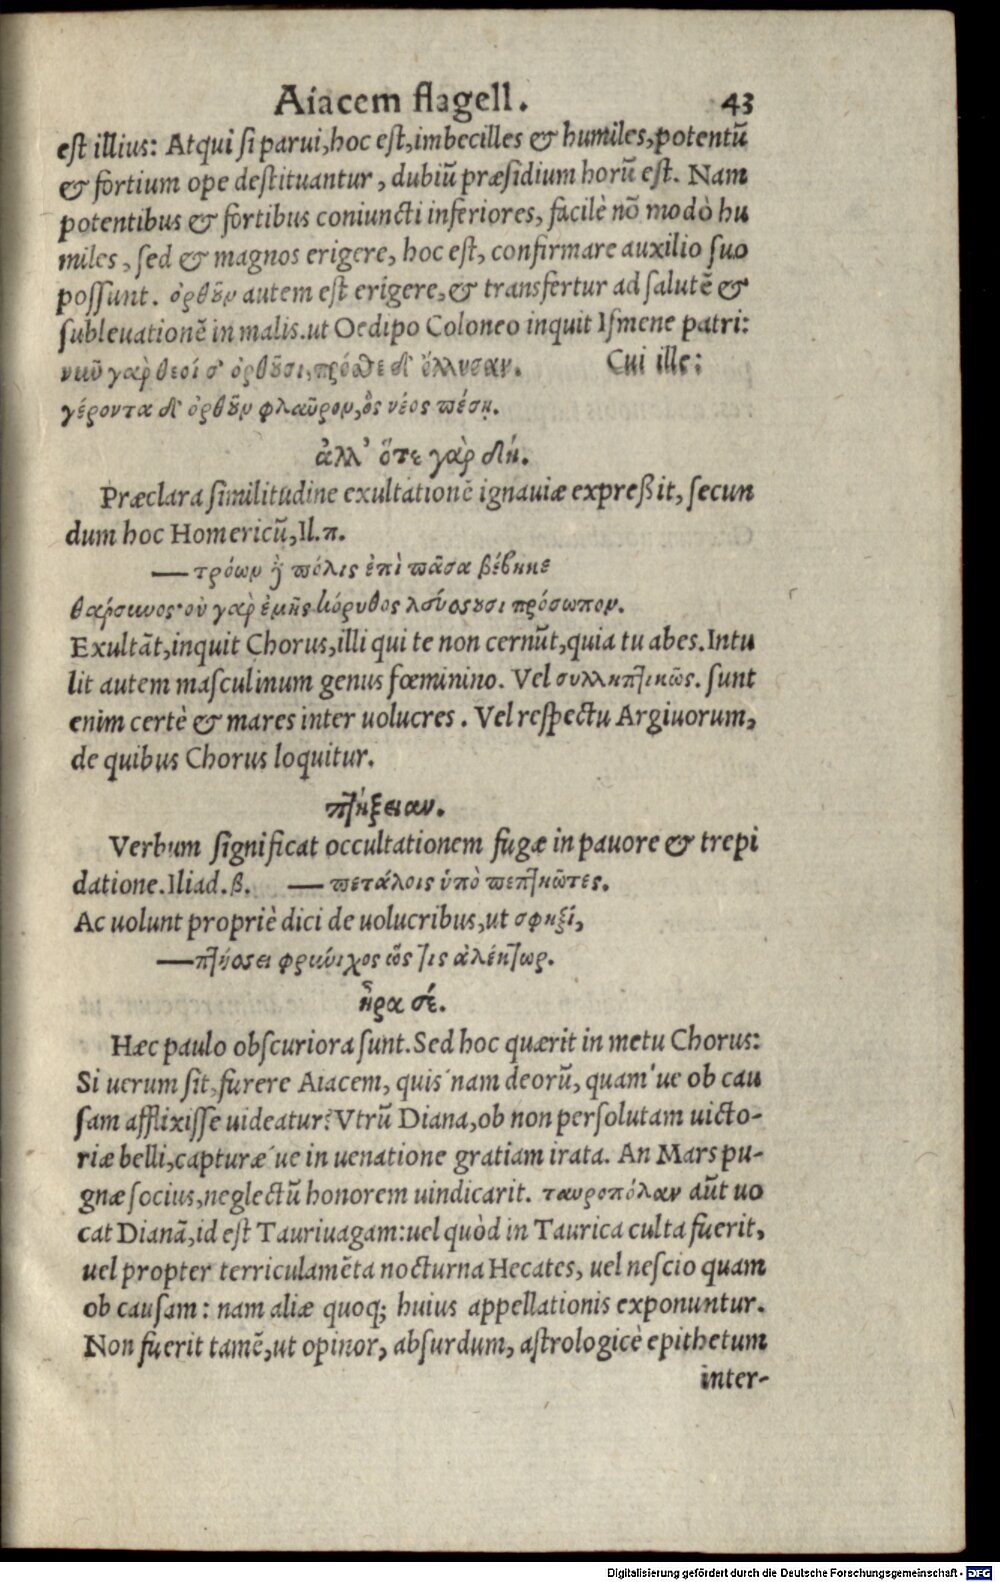 Aiacem flagell. 43
est illius: Atqui si parui, hoc est, imbecilles & humiles, potentũ
& fortium ope destituantur, dubiũ præsidium horũ est. Nam
potentibus & fortibus coniuncti inferiores, facilè nõ modò hu
miles, sed & magnos erigere, hoc est, confirmare auxilio suo
possunt. ὀρθοῦν autem est erigere, & transfertur ad salutẽ &
subleuationẽ in malis. ut Oedipo Coloneo inquit Ismene patri:
νῦν γὰρ θεοί σ' ὀρθοῦσι, πρόσθε δ' ὄλλυσαν. Cui ille:
γέροντα δ' ὀρθοῦν φλαῦρον, ὃς νέος πέσῃ.
ἀλλ' ὅτε γὰρ δή.
Præclara similitudine exultationẽ ignauiæ expreßit, secun
dum hoc Homericũ, Il. π.
— τρόων ἢ πόλις ἐπὶ πᾶσα βέβηκε
θαρσυνος· οὐ γὰρ ἐμῆς κόρυθος λεύσουσι πρόσωπον.
Exultãt, inquit Chorus, illi qui te non cernũt, quia tu abes. Intu
lit autem masculinum genus fœminino. Vel συλληπτικῶς. sunt
enim certè & mares inter uolucres. Vel respectu Argiuorum,
de quibus Chorus loquitur.
πτήξειαν.
Verbum significat occultationem fugæ in pauore & trepi
datione. Iliad. β. — πετάλοις ὑπὸ πεπτηῶτες.
Ac uolunt propriè dici de uolucribus, ut σφηξί,
— πτήσσει φρύνιχος ὥς τις ἀλέκτωρ.
ἦρα σέ.
Hæc paulo obscuriora sunt. Sed hoc quærit in metu Chorus:
Si uerum sit, furere Aiacem, quis'nam deorũ, quam'ue ob cau
sam afflixisse uideatur? Vtrũ Diana, ob non persolutam uicto-
riæ belli, capturæ'ue in uenatione gratiam irata. An Mars pu-
gnæ socius, neglectũ honorem uindicarit. ταυροπόλαν aũt uo
cat Dianã, id est Tauriuagam: uel quòd in Taurica culta fuerit,
uel propter terriculamẽta nocturna Hecates, uel nescio quam
ob causam: nam aliæ quoq; huius appellationis exponuntur.
Non fuerit tamẽ, ut opinor, absurdum, astrologicè epithetum
inter-
Digitalisierung gefördert durch die Deutsche Forschungsgemeinschaft - DFG